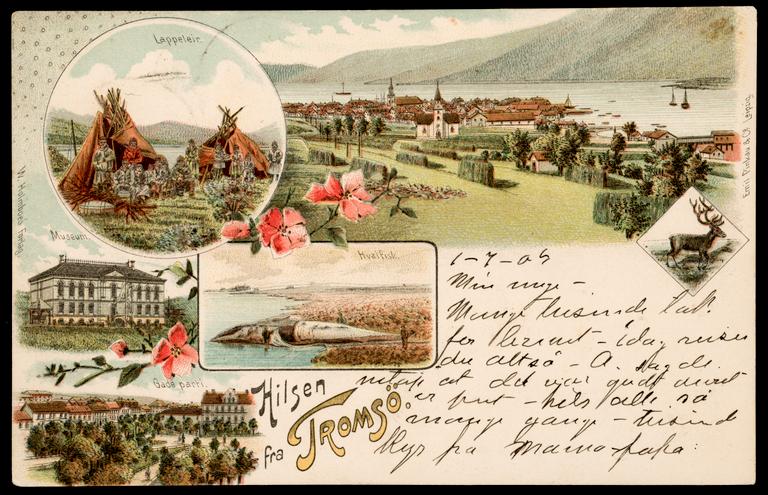 Lappeleir.
W. Holmboes Forlag
Emil Pinkau & Co. Leipzig.
Museum.
Hvalfisk.
Gade parti.
Hilsen
fra TROMSÖ.
1-7-05
Min unge -
Mange tusinde tak
for brevet - idag reiser
du altså - A.
at det var godt
er - hils alle så
mange gange - tusind
Kys fra Mama-papa: